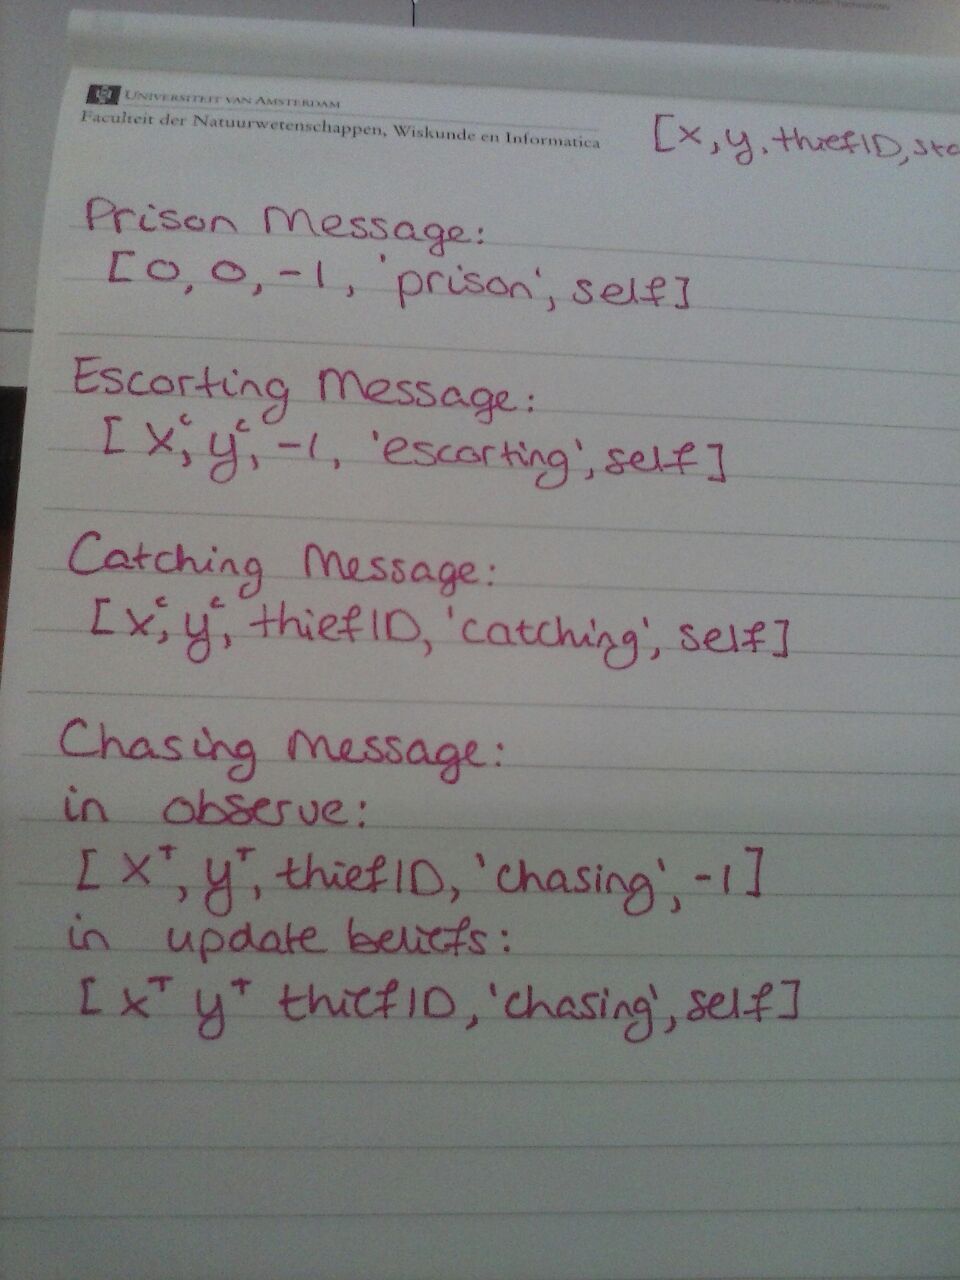 UNIVERSITEIT VAN AMSTERDAM
Faculteit der Natuurwetenschappen, Wiskunde en Informatica
[x, y, thiefID, sta
Prison Message:
[0, 0, -1, 'prison', self]
Escorting Message:
[xᶜ, yᶜ, -1, 'escorting', self]
Catching Message:
[xᶜ, yᶜ, thiefID, 'catching', self]
Chasing Message:
in observe:
[xᵀ, yᵀ, thiefID, 'chasing', -1]
in update beliefs:
[xᵀ yᵀ thiefID, 'chasing', self]